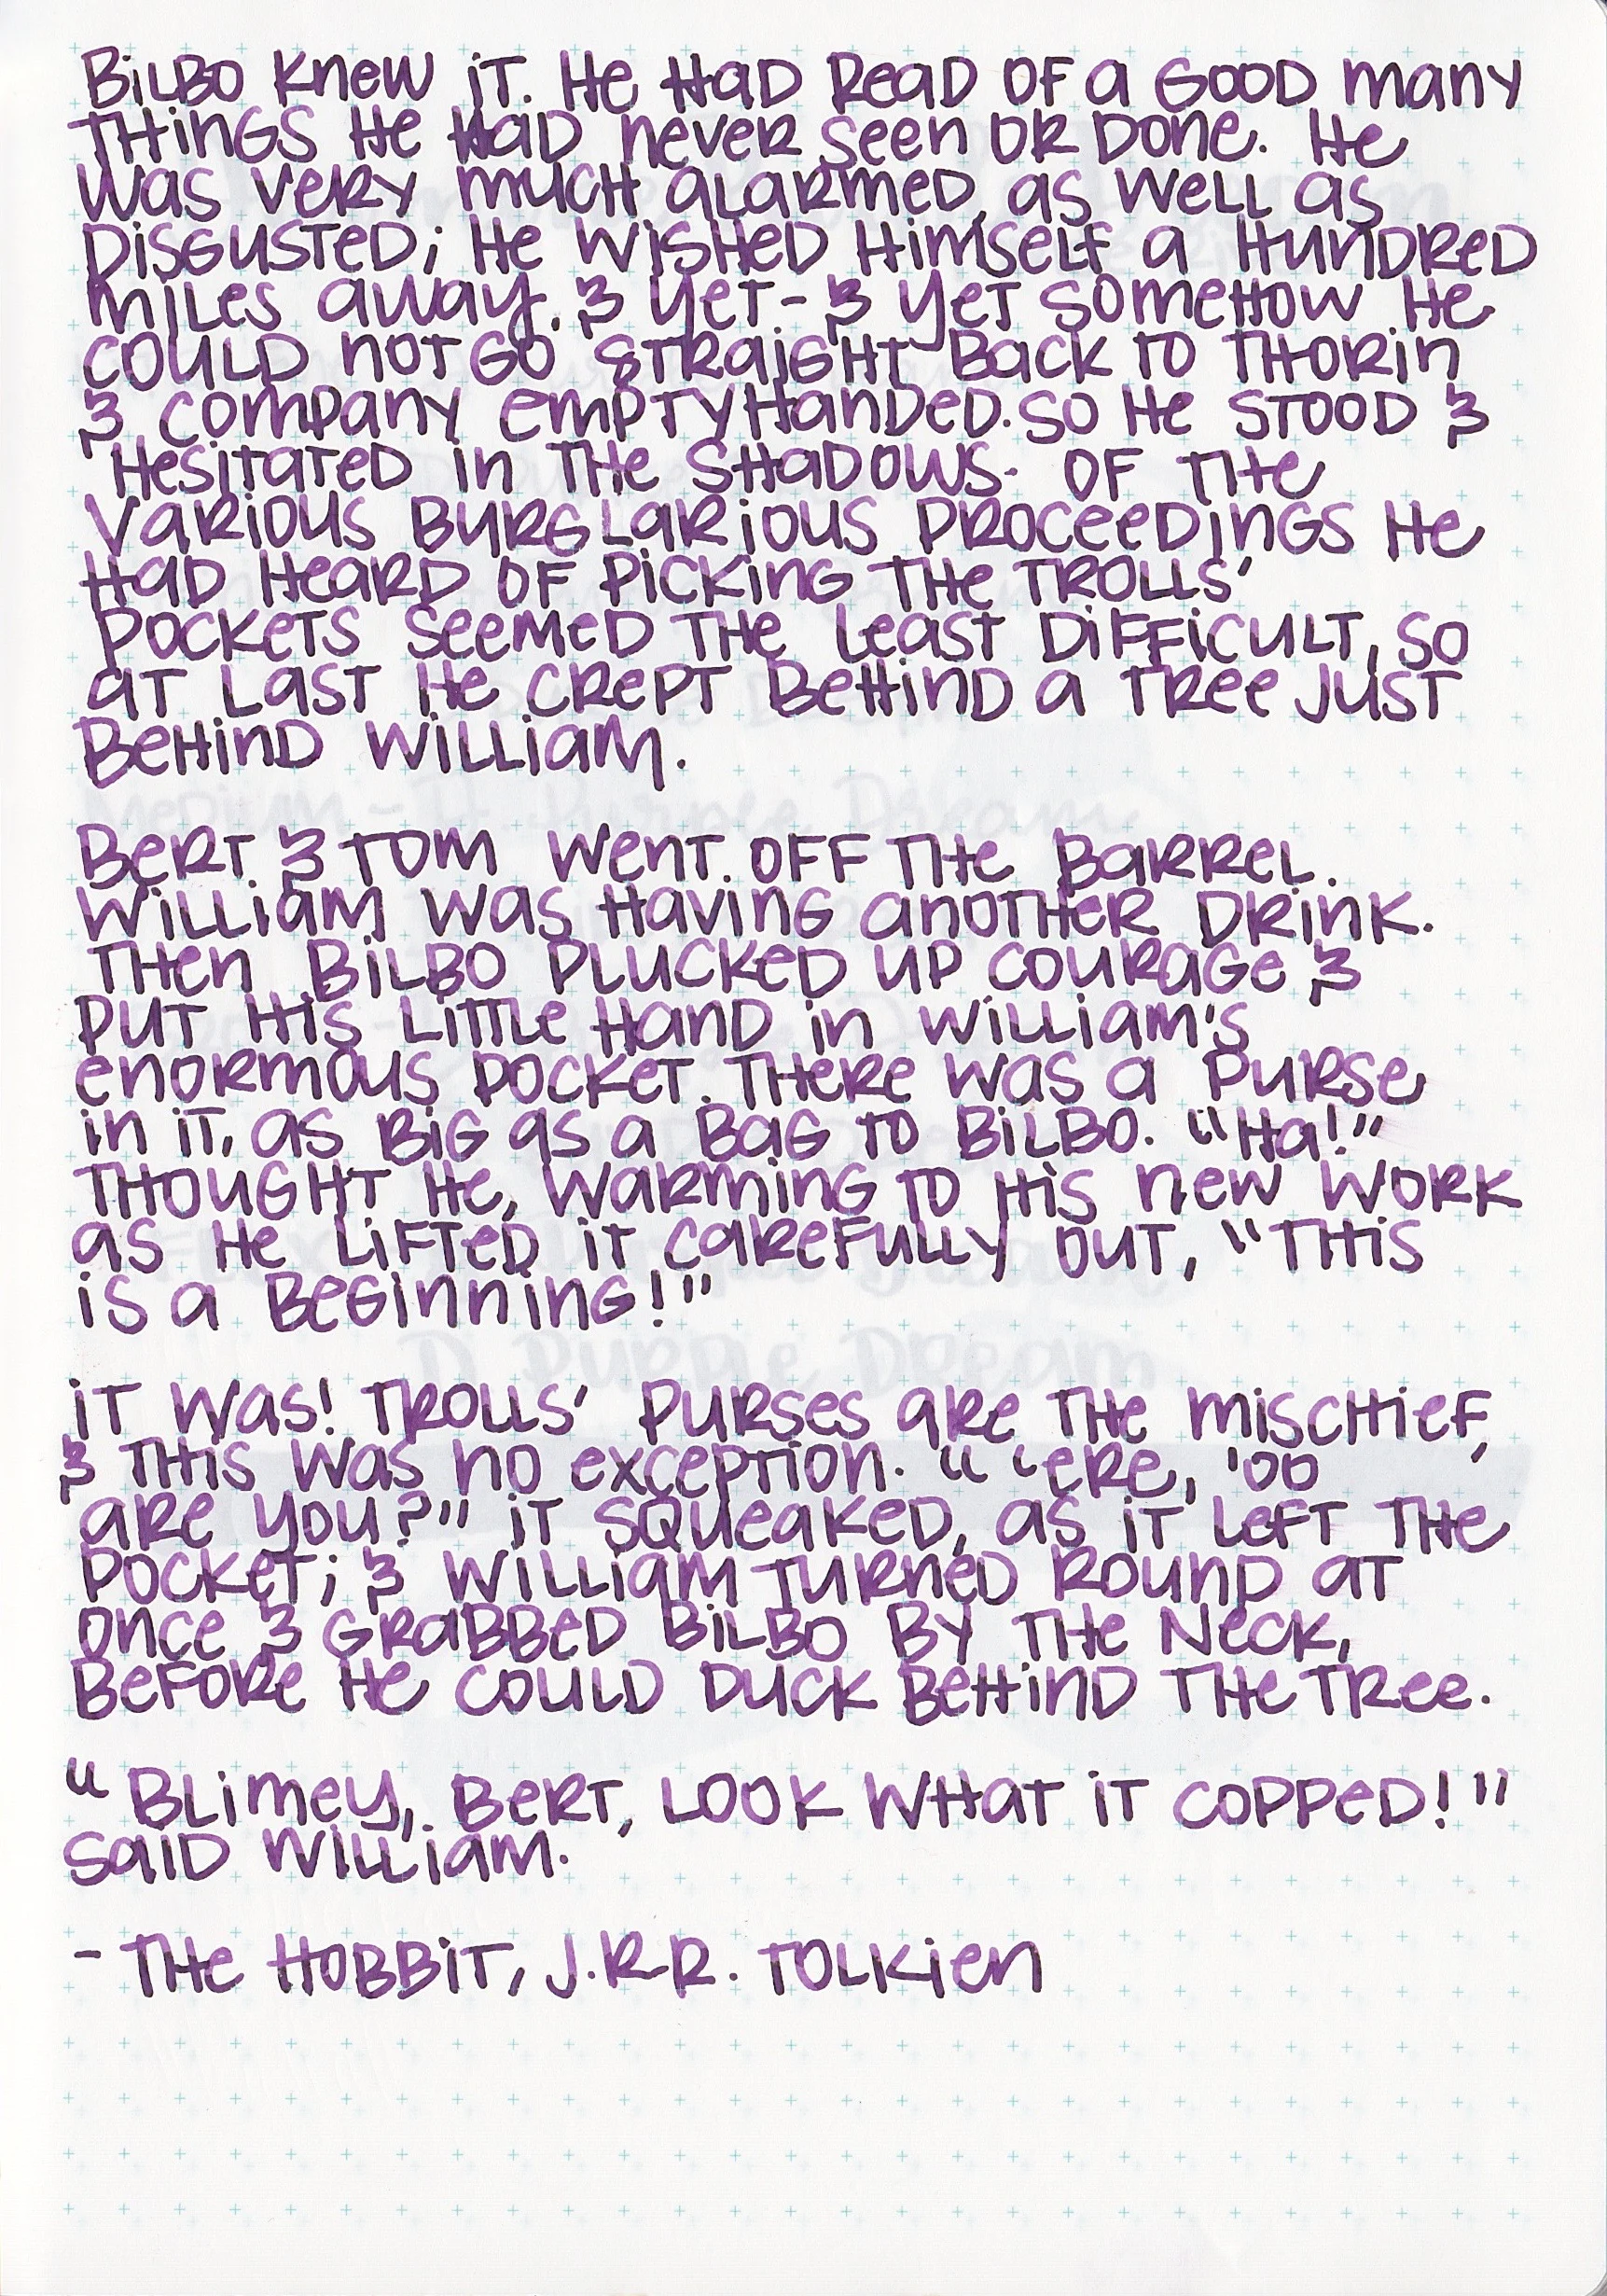 Bilbo knew it. He had read of a good many
things he had never seen or done. He
was very much alarmed, as well as
disgusted; he wished himself a hundred
miles away, & yet - & yet somehow he
could not go straight back to Thorin
& Company emptyhanded. So he stood &
hesitated in the shadows. Of the
various burglarious proceedings he
had heard of picking the trolls'
pockets seemed the least difficult, so
at last he crept behind a tree just
behind William.
Bert & Tom went off the barrel.
William was having another drink.
Then Bilbo plucked up courage &
put his little hand in William's
enormous pocket. There was a purse
in it, as big as a bag to Bilbo. "Ha!"
thought he, warming to his new work
as he lifted it carefully out, "this
is a beginning!"
It was! Trolls' purses are the mischief,
& this was no exception. " 'ere, 'oo
are you?" it squeaked, as it left the
pocket; & William turned round at
once & grabbed Bilbo by the neck,
before he could duck behind the tree.
"Blimey, Bert, look what it copped!"
said William.
- The Hobbit, J.R.R. Tolkien